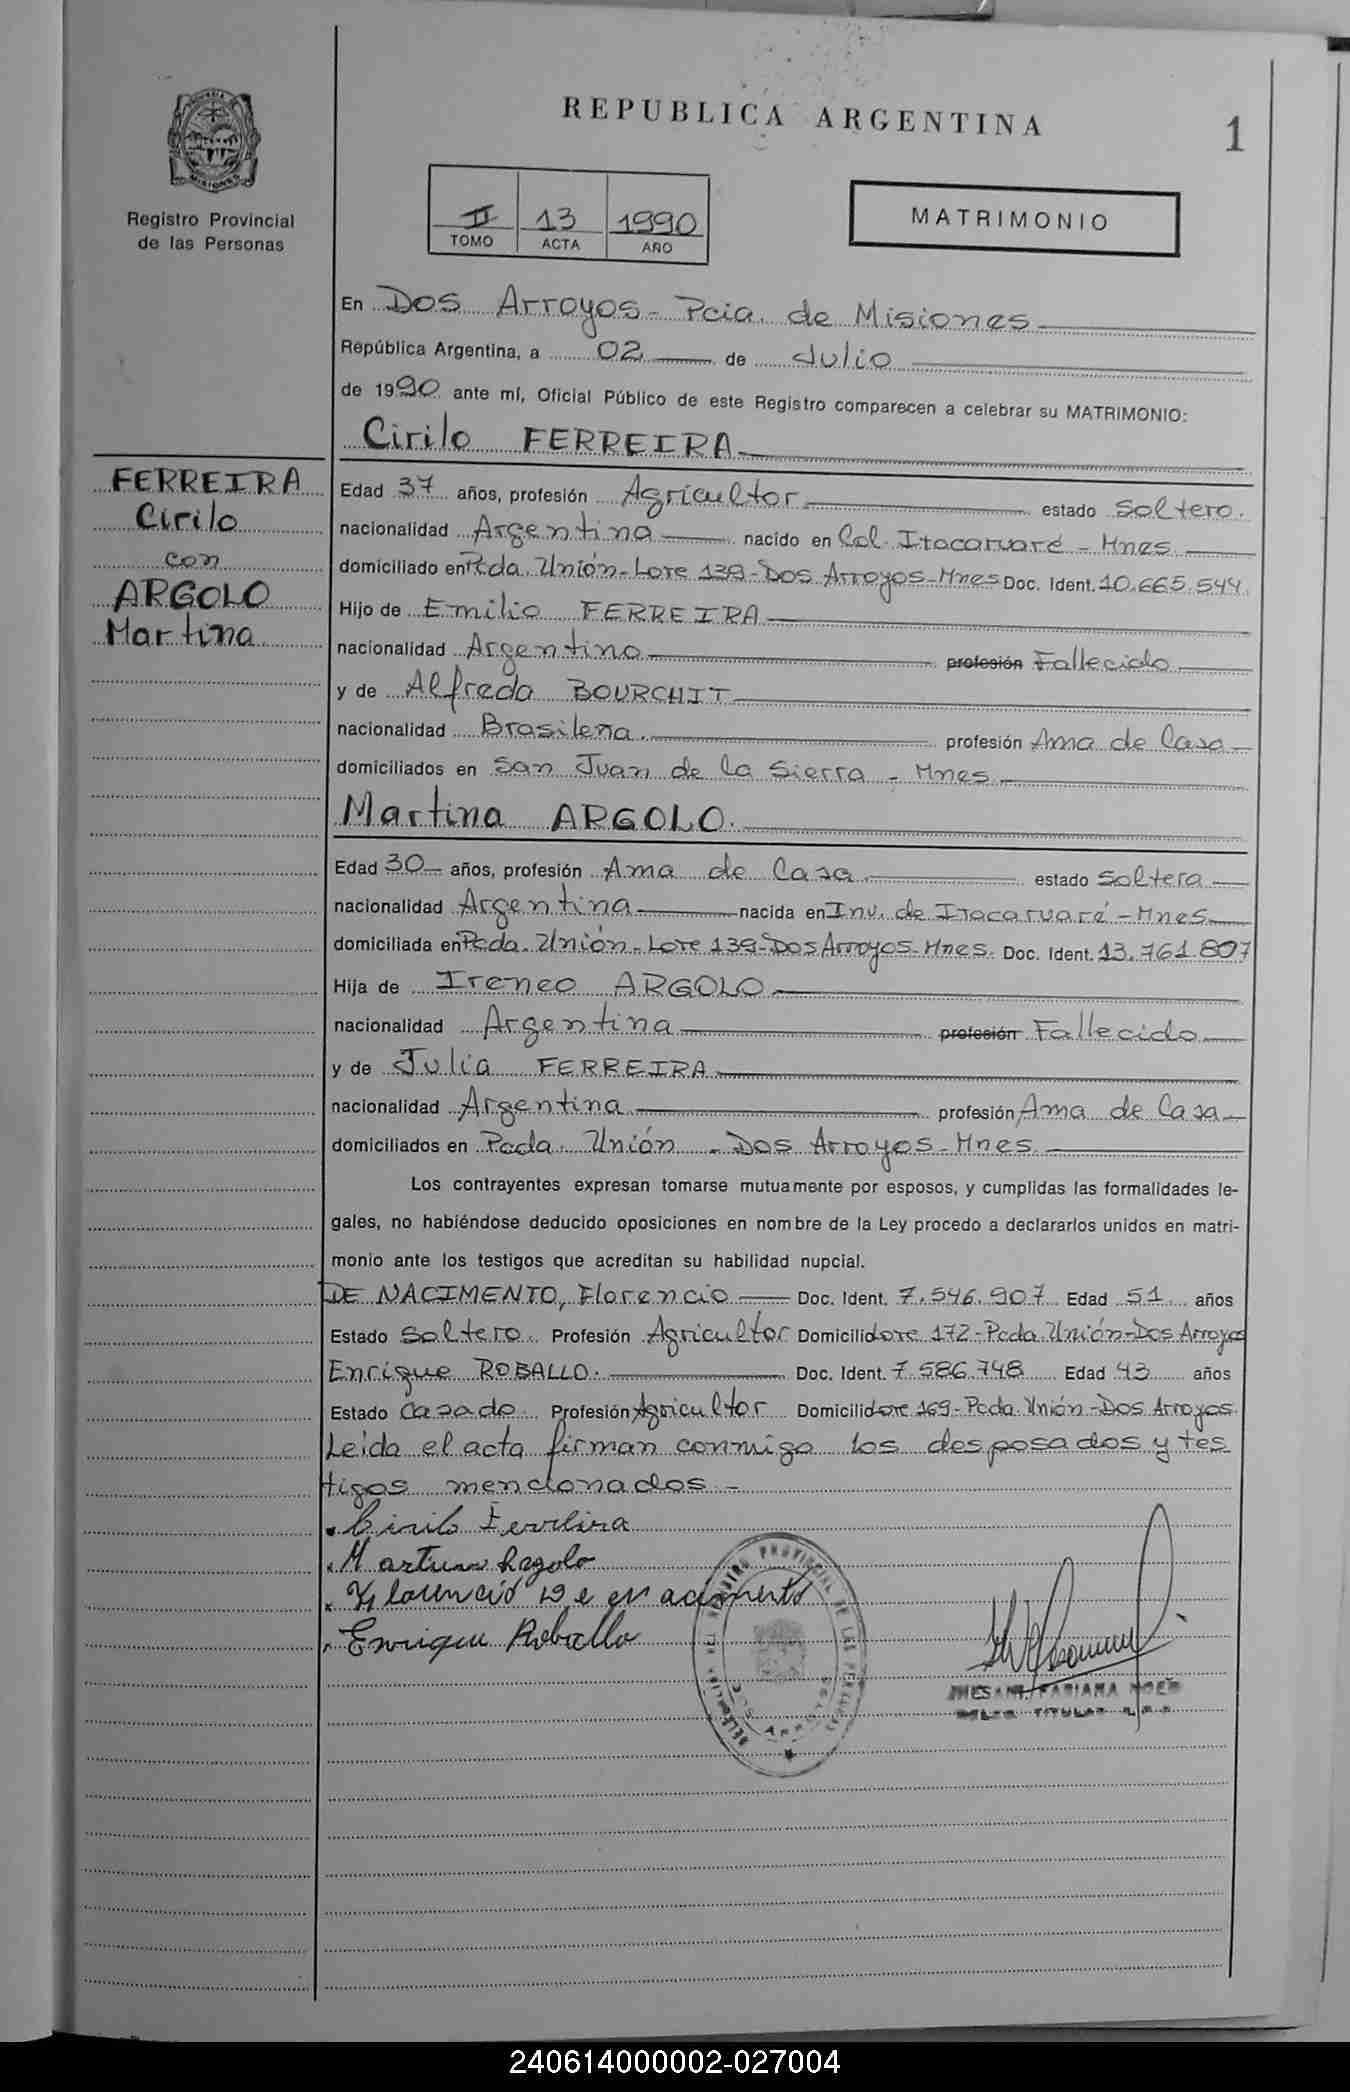 REPUBLICA ARGENTINA
1
Registro Provincial
de las Personas
II 13 1990
TOMO ACTA AÑO
MATRIMONIO
En Dos Arroyos - Pcia. de Misiones
República Argentina, a 02 de Julio
de 1990 ante mí, Oficial Público de este Registro comparecen a celebrar su MATRIMONIO:
Cirilo FERREIRA
FERREIRA
Cirilo
con
ARGOLO
Martina
Edad 37 años, profesión Agricultor estado Soltero.
nacionalidad Argentina nacido en Col. Itacaruaré - Mnes
domiciliado en Pcda. Unión - Lote 139 - Dos Arroyos - Mnes Doc. Ident. 10.665.544.
Hijo de Emilio FERREIRA
nacionalidad Argentino profesión Fallecido
y de Alfreda BOURCHIT
nacionalidad Brasileña. profesión Ama de Casa
domiciliados en San Juan de la Sierra - Mnes
Martina ARGOLO.
Edad 30 años, profesión Ama de Casa estado Soltera
nacionalidad Argentina nacida en Inv. de Itacaruaré - Mnes
domiciliada en Pcda. Unión - Lote 139 - Dos Arroyos - Mnes. Doc. Ident. 13.761.807
Hija de Ireneo ARGOLO
nacionalidad Argentina profesión Fallecido
y de Julia FERREIRA
nacionalidad Argentina profesión Ama de Casa
domiciliados en Pcda. Unión - Dos Arroyos - Mnes.
Los contrayentes expresan tomarse mutuamente por esposos, y cumplidas las formalidades le-
gales, no habiéndose deducido oposiciones en nombre de la Ley procedo a declararlos unidos en matri-
monio ante los testigos que acreditan su habilidad nupcial.
DE NACIMENTO, Florencio Doc. Ident. 7.546.907 Edad 51 años
Estado Soltero. Profesión Agricultor Domicilio Lote 172 - Pcda. Unión - Dos Arroyos
Enrique ROBALLO. Doc. Ident. 7.586.748 Edad 43 años
Estado Casado. Profesión Agricultor Domicilio Lote 169 - Pcda. Unión - Dos Arroyos.
Leída el acta firman conmigo los desposados y tes
tigos mencionados. -
Cirilo Ferreira
Martina Argolo
Florencio De nacimento
Enrique Roballo
FABIANA NOEMI
TITULAR
240614000002-027004